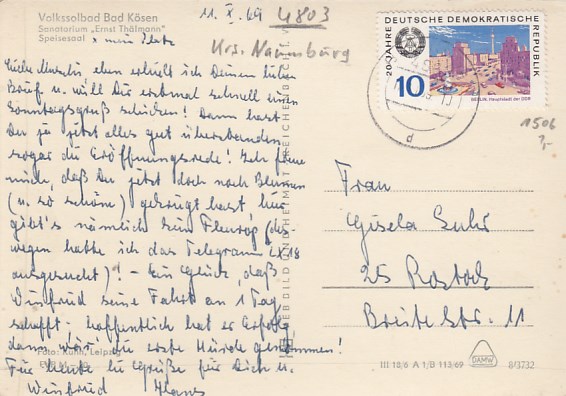 Volkssolbad Bad Kösen
Sanatorium „Ernst Thälmann"
Speisesaal x mein Platz
11. X. 69
4803
Krs. Naumburg
20 JAHRE DEUTSCHE DEMOKRATISCHE REPUBLIK
10
BERLIN, Hauptstadt der DDR
1506
eben erhielt ich Deinen lieben
Brief u. will Dir erstmal schnell einen
Sonntagsgruß schicken! Dann hast
Du ja jetzt alles gut überstanden
sogar die Eröffnungsrede! Sehr freue
mich, daß Du jetzt doch noch Blumen
(u. so schöne) gekriegt hast, hier
gibt's nämlich kein Fleurop (des-
wegen hatte ich das Telegramm LX 18
ausgesucht)! - Ein Glück, daß
Winfried seine Fahrt an 1 Tag
schafft, hoffentlich hat er Erfolg,
dann wär' die erste Hürde genommen!
Für heute liebe Grüße für Dich u.
Winfried
Foto: Kühn, Leipzig
BILD UND HEIMAT REICHENBACH
Frau
Gisela Suhr
25 Rostock
Breite Str. 11
III 10/6 A 1/B 113/69
DAMW
8/3732